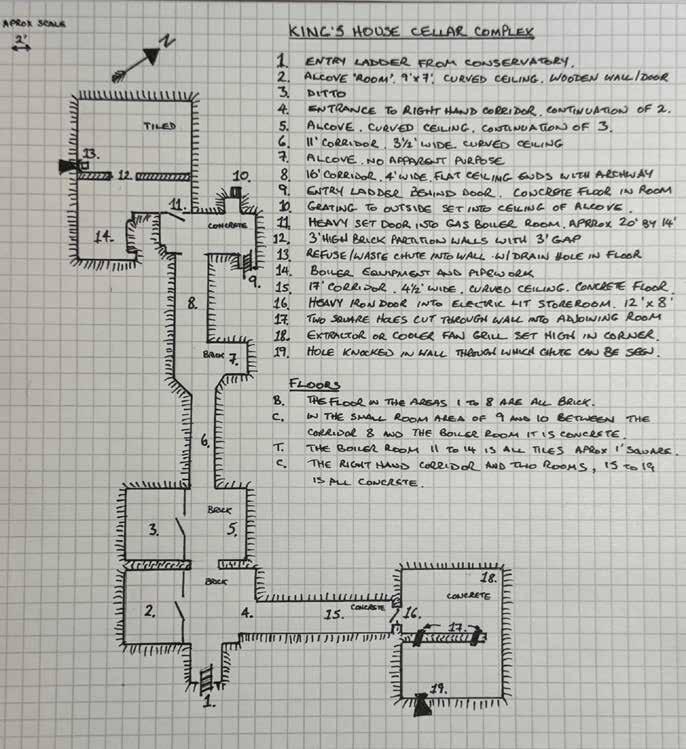 APROX SCALE
2'
N
KING'S HOUSE CELLAR COMPLEX
1. ENTRY LADDER FROM CONSERVATORY.
2. ALCOVE 'ROOM'. 9'x7'. CURVED CEILING. WOODEN WALL/DOOR
3. DITTO
4. ENTRANCE TO RIGHT HAND CORRIDOR. CONTINUATION OF 2.
5. ALCOVE. CURVED CEILING. CONTINUATION OF 3.
6. 11' CORRIDOR. 3½' WIDE. CURVED CEILING
7. ALCOVE. NO APPARENT PURPOSE
8. 16' CORRIDOR. 4' WIDE. FLAT CEILING ENDS WITH ARCHWAY
9. ENTRY LADDER BEHIND DOOR. CONCRETE FLOOR IN ROOM
10. GRATING TO OUTSIDE SET INTO CEILING OF ALCOVE.
11. HEAVY SET DOOR INTO GAS BOILER ROOM. APROX 20' BY 14'
12. 3' HIGH BRICK PARTITION WALLS WITH 3' GAP
13. REFUSE/WASTE CHUTE INTO WALL W/DRAIN HOLE IN FLOOR
14. BOILER EQUIPMENT AND PIPEWORK
15. 17' CORRIDOR. 4½' WIDE. CURVED CEILING. CONCRETE FLOOR.
16. HEAVY IRON DOOR INTO ELECTRIC LIT STOREROOM. 12' x 8'
17. TWO SQUARE HOLES CUT THROUGH WALL INTO ADJOINING ROOM
18. EXTRACTOR OR COOLER FAN GRILL SET HIGH IN CORNER.
19. HOLE KNOCKED IN WALL THROUGH WHICH CHUTE CAN BE SEEN.
FLOORS
B. THE FLOOR IN THE AREAS 1 TO 8 ARE ALL BRICK.
C. IN THE SMALL ROOM AREA OF 9 AND 10 BETWEEN THE
CORRIDOR 8 AND THE BOILER ROOM IT IS CONCRETE.
T. THE BOILER ROOM 11 TO 14 IS ALL TILES APROX 1' SQUARE.
C. THE RIGHT HAND CORRIDOR AND TWO ROOMS, 15 TO 19
IS ALL CONCRETE.
TILED
13.
12.
10.
11.
CONCRETE
14.
9.
8.
BRICK 7.
6.
BRICK
3.
5.
BRICK
2.
4.
15.
CONCRETE
16.
18.
CONCRETE
17.
1.
19.